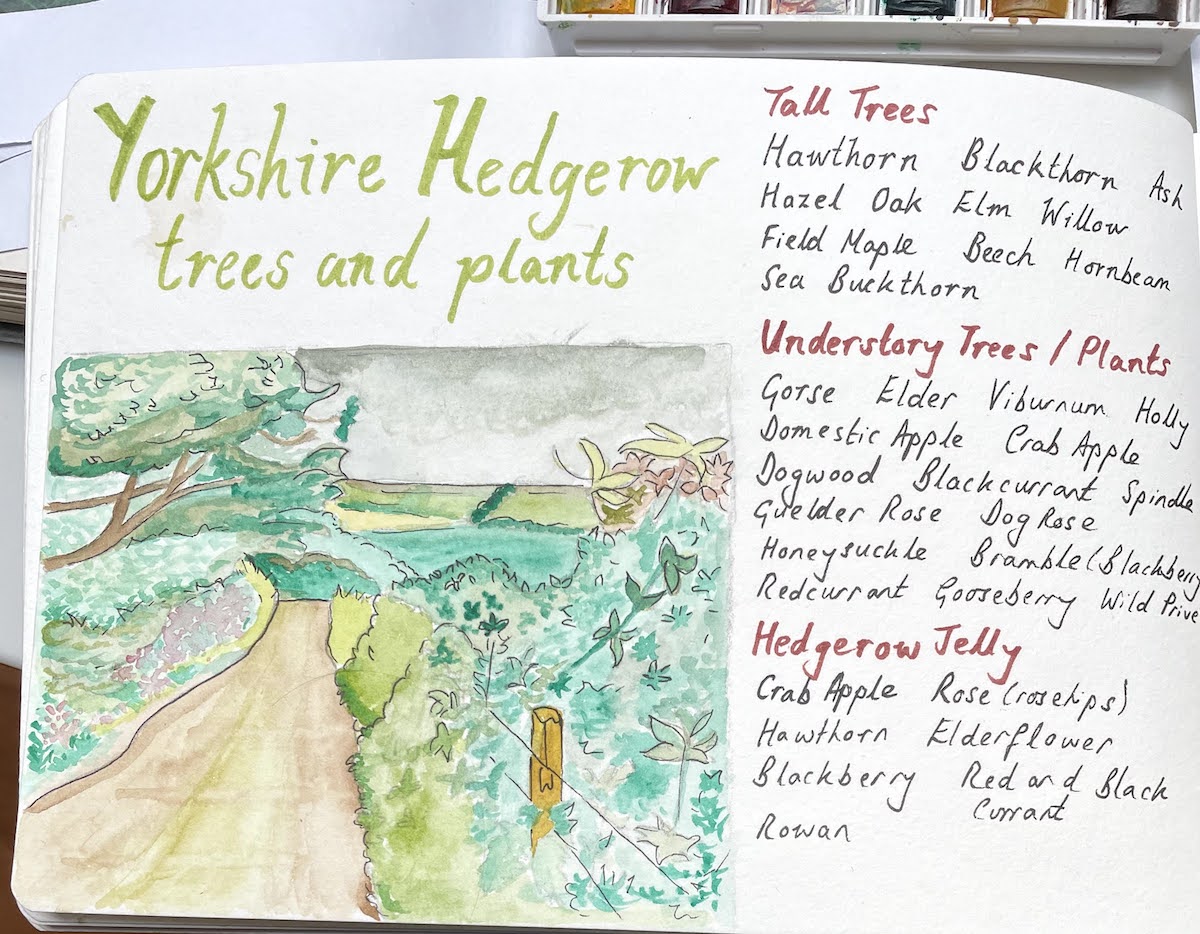 Yorkshire Hedgerow
trees and plants
Tall Trees
Hawthorn Blackthorn Ash
Hazel Oak Elm Willow
Field Maple Beech Hornbeam
Sea Buckthorn
Understory Trees / Plants
Gorse Elder Viburnum Holly
Domestic Apple Crab Apple
Dogwood Blackcurrant Spindle
Guelder Rose Dog Rose
Honeysuckle Bramble (Blackberry
Redcurrant Gooseberry Wild Prive
Hedgerow Jelly
Crab Apple Rose (rosehips)
Hawthorn Elderflower
Blackberry Red and Black
Currant
Rowan